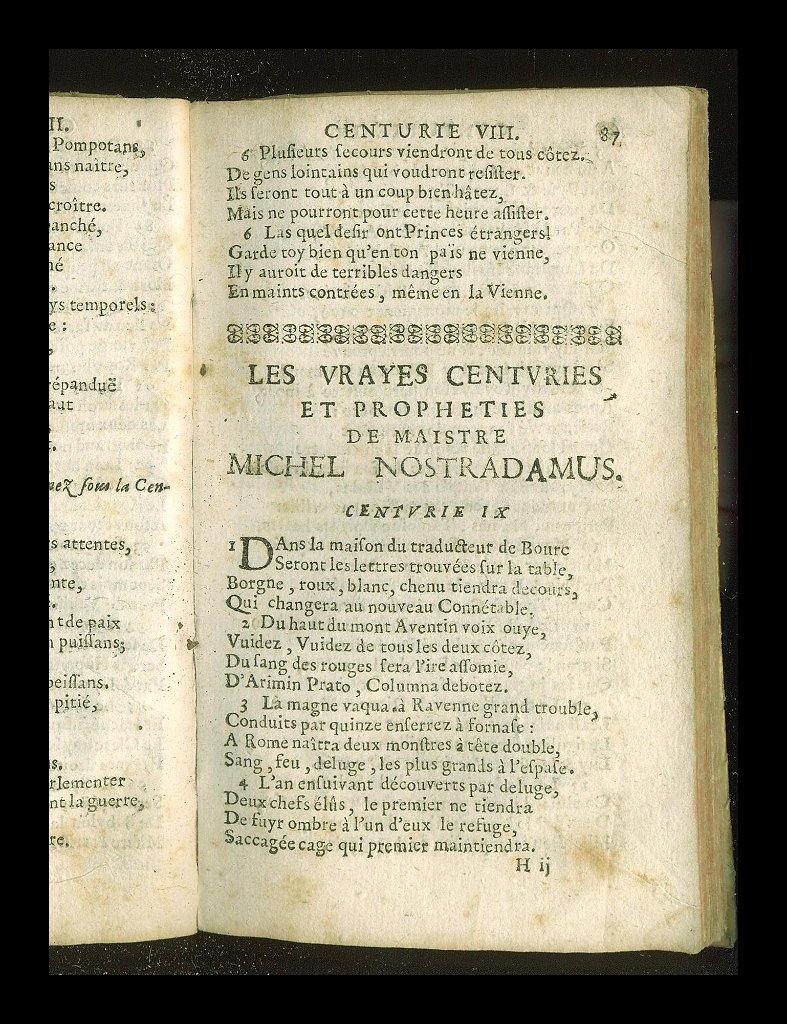 II.
Pompotans,
ans naître,
s
croître.
anché,
ance
né
ys temporels:
e:
répanduë
aut
nez sous la Cen-
s attentes,
nte,
nt de paix
puissans;
beissans.
pitié,
s.
rlementer
nt la guerre,
re.
CENTURIE VIII. 87
6 Plusieurs secours viendront de tous côtez.
De gens lointains qui voudront resister.
Ils seront tout à un coup bien hâtez,
Mais ne pourront pour cette heure assister.
6 Las quel desir ont Princes étrangers!
Garde toy bien qu'en ton païs ne vienne,
Il y auroit de terribles dangers
En maints contrées, même en la Vienne.
LES VRAYES CENTVRIES
ET PROPHETIES
DE MAISTRE
MICHEL NOSTRADAMUS.
CENTVRIE IX
1 DAns la maison du traducteur de Bourc
Seront les lettres trouvées sur la table,
Borgne, roux, blanc, chenu tiendra decours,
Qui changera au nouveau Connétable.
2 Du haut du mont Aventin voix ouye,
Vuidez, Vuidez de tous les deux côtez,
Du sang des rouges sera l'ire assomie,
D'Arimin Prato, Columna debotez.
3 La magne vaqua.à Ravenne grand trouble,
Conduits par quinze enserrez à fornase:
A Rome naîtra deux monstres à tête double,
Sang, feu, deluge, les plus grands à l'espase.
4 L'an ensuivant découverts par deluge,
Deux chefs élûs, le premier ne tiendra
De fuyr ombre à l'un d'eux le refuge,
Saccagée cage qui premier maintiendra.
H ij